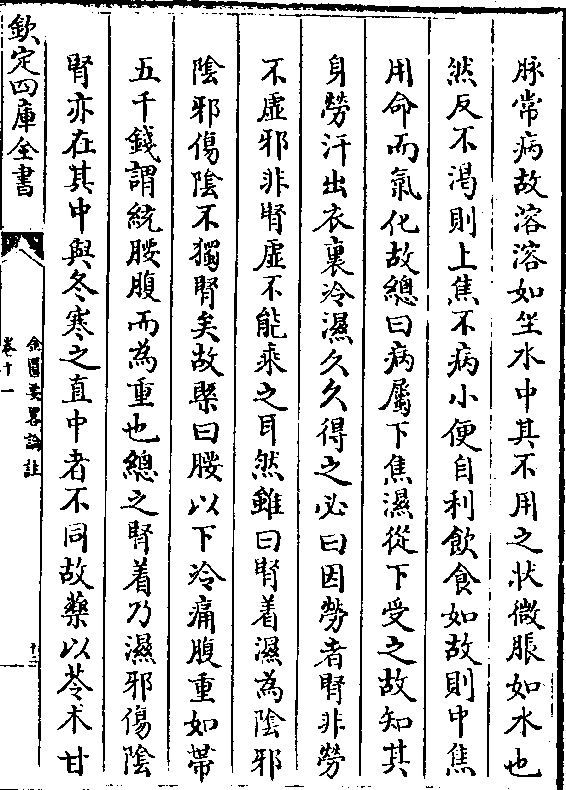 脉常病故溶溶如坐水中其不用之狀微脹如水也
然反不渴則上焦不病小便自利飲食如故則中焦
用命而氣化故總曰病屬下焦濕從下受之故知其
身勞汗出衣裏冷濕久久得之必曰因勞者腎非勞
不虛邪非腎虛不能乘之耳然雖曰腎着濕為陰邪
陰邪傷陰不獨腎矣故槩曰腰以下冷痛腹重如帶
五千錢謂統腰腹而為重也總之腎着乃濕邪傷陰
腎亦在其中與冬寒之直中者不同故藥以苓术甘
欽定四庫全書
金匱要畧論註
卷十一
十三